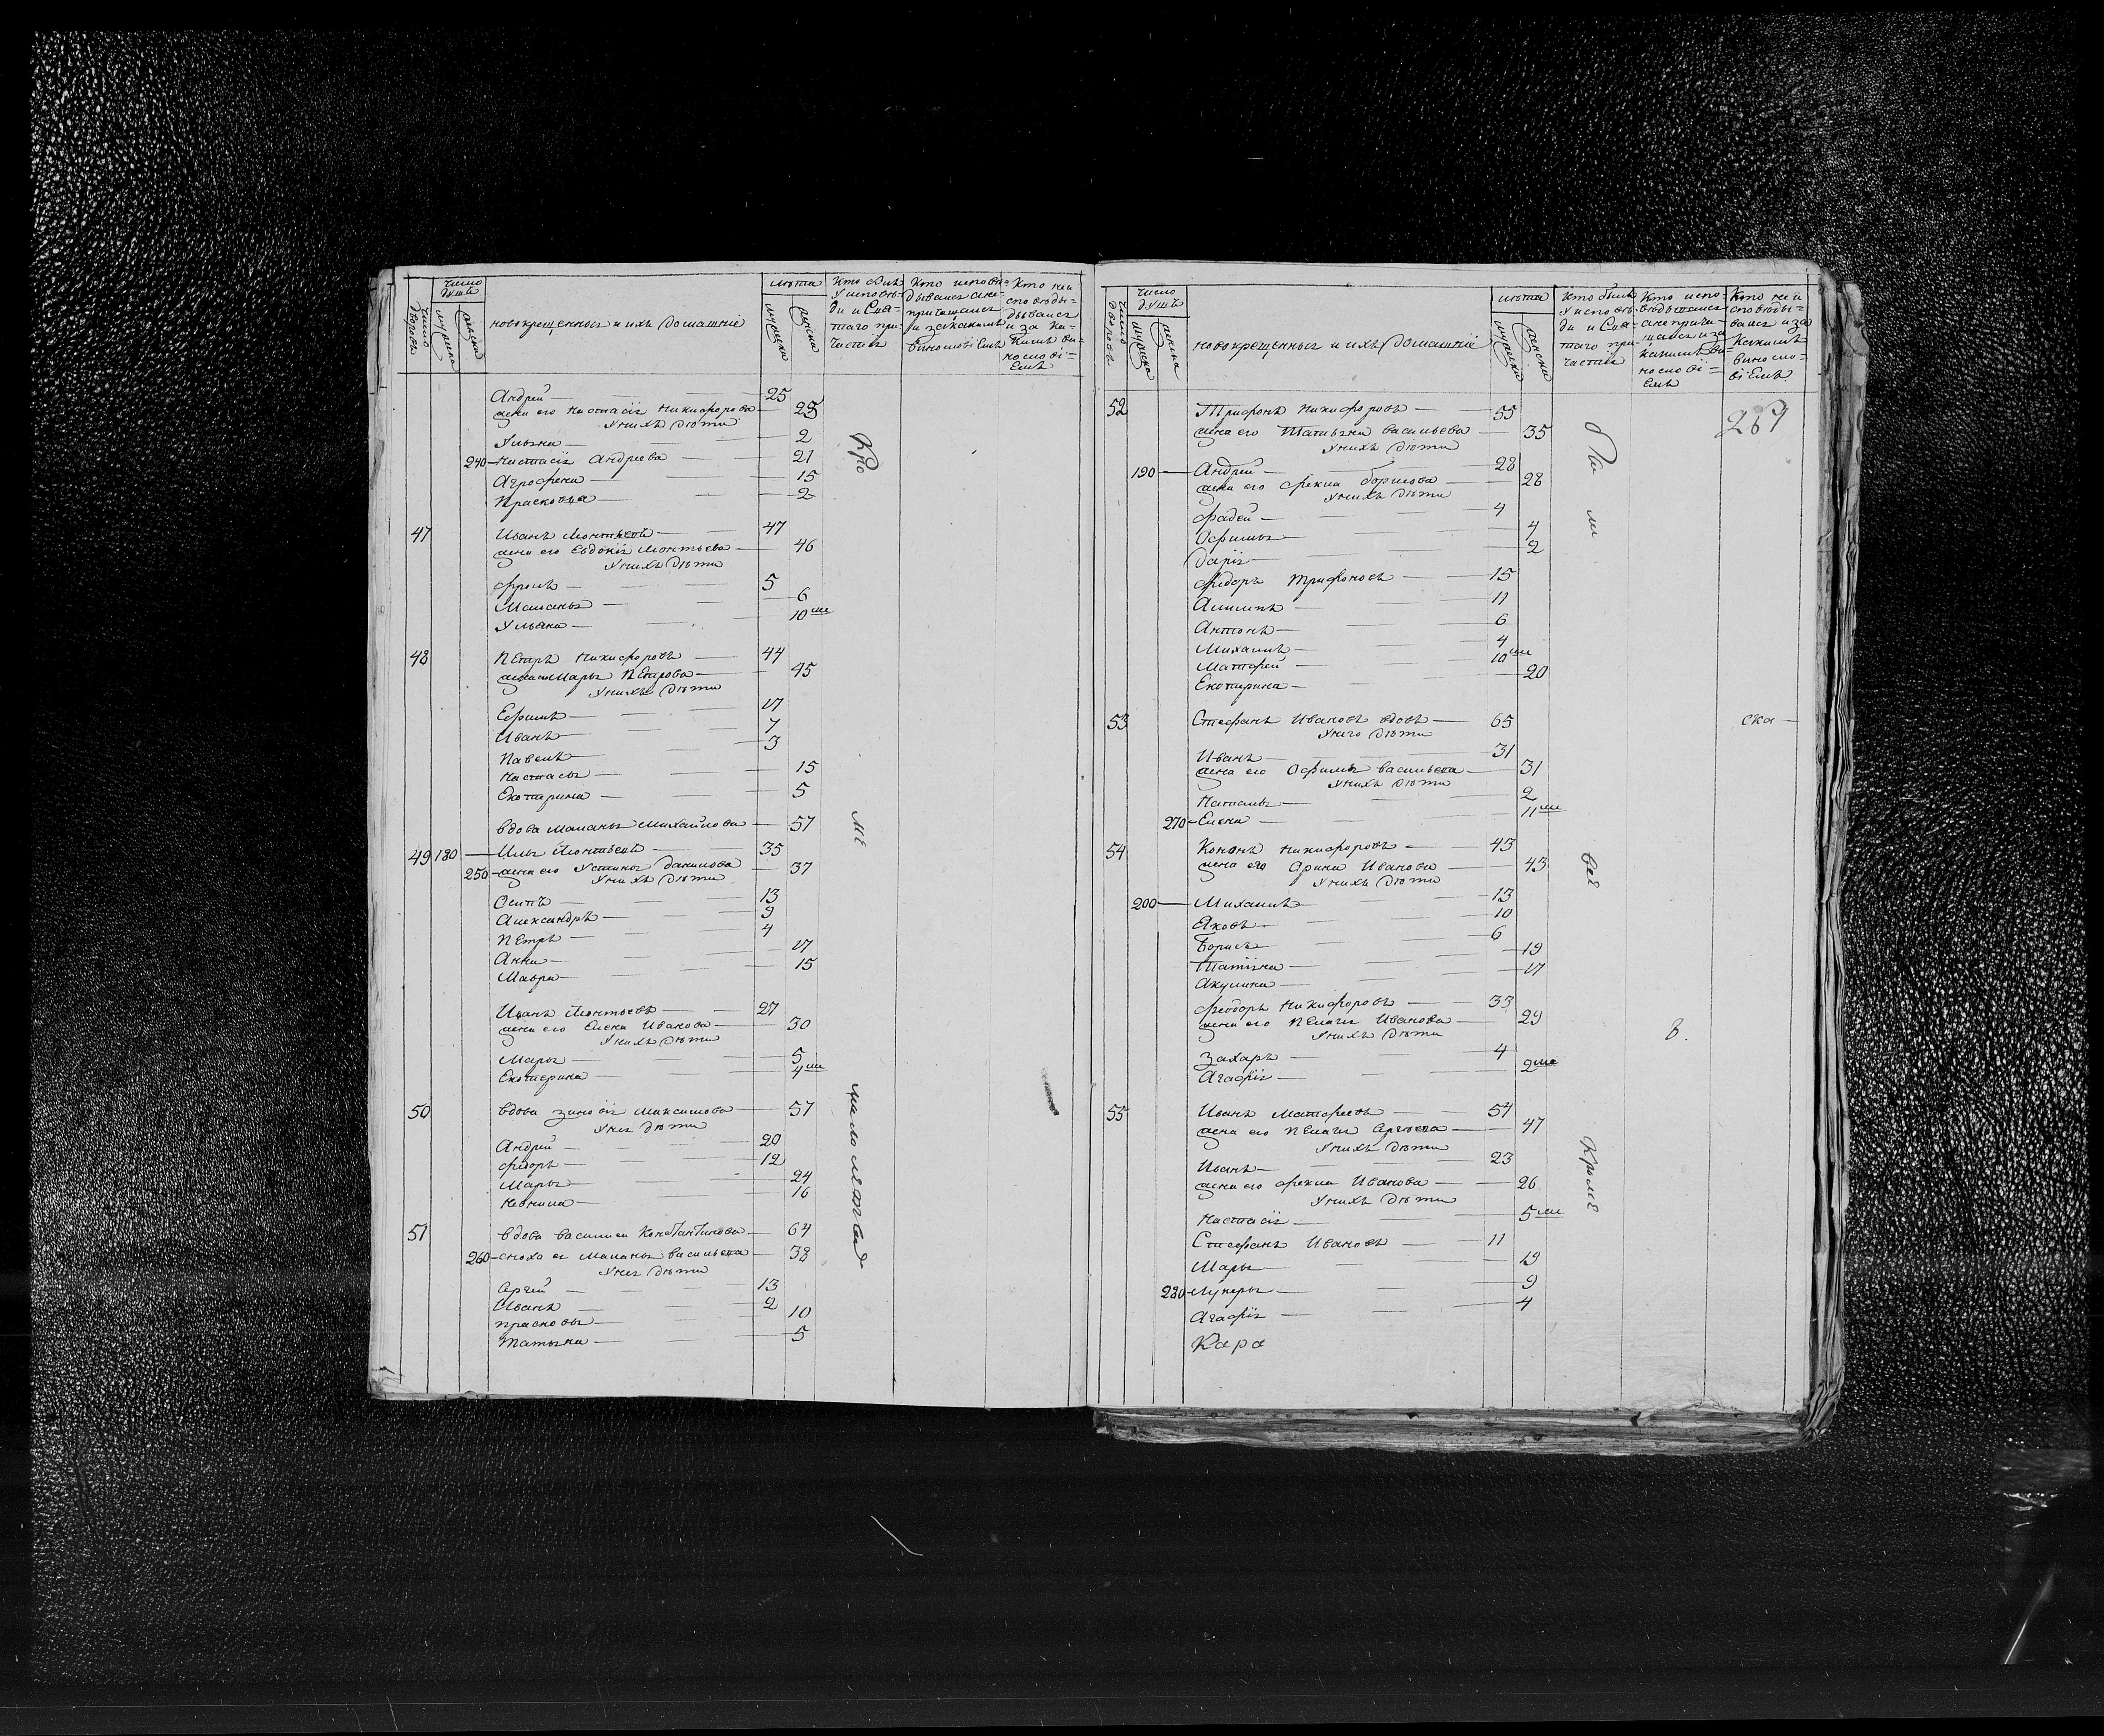 число дворовъ
число душъ
мужска
женска
новокрещенныя и ихъ домашніе
лѣта
мужска
женска
Кто былъ
у исповѣ-
ди и Свя-
таго при-
частія
Кто исповѣ-
дывался а не
причащался
и за какимъ
винословіемъ
Кто не и
сповѣды-
вался
и за ка-
кимъ ви-
нословi-
емъ
Андрей 25
жена его Настасія Никифорова 25
У нихъ дѣти
Ульяна 2
240 Настасія Андреева 21
Агрофена 15
Прасковья 2
47 Иванъ Леонтьевъ 47
жена его Евдокія Леонтьева 46
У нихъ дѣти
Фролъ 5
Маланья 6
Ульяна 10 ме
48 Петръ Никифоровъ 44
жена его Марья Петрова 45
У нихъ дѣти
Ефимъ 17
Иванъ 7
Павелъ 3
Настасья 15
Екатерина 5
вдова Маланья Михайлова 57
49 180 Илья Леонтьевъ 35
250 жена его Устинья Данилова 37
У нихъ дѣти
Осипъ 13
Александръ 9
Петръ 4
Анна 17
Мавра 15
Иванъ Леонтьевъ 27
жена его Елена Иванова 30
У нихъ дѣти
Марья 5
Екатерина 4 ме
50 вдова Зиновія Максимова 57
У нея дѣти
Андрей 20
Федоръ 12
Марья 24
Неонила 16
51 вдова Василиса Константинова 64
260 сноха ея Маланья Васильева 38
У нея дѣти
Сергей 13
Иванъ 2
Прасковья 10
Татьяна 5
Кро
мѣ
малолѣтъ
число дворовъ
число душъ
мужска
женска
новокрещенныя и ихъ домашніе
лѣта
мужска
женска
Кто былъ
у исповѣ-
ди и Свя-
таго при-
частія
Кто испо-
вѣдывался
а не прича-
щался и за
какимъ ви-
нословi-
емъ
Кто не и
сповѣды-
вался и за
какимъ
винсло-
віемъ
267
52 Трифонъ Никифоровъ 55
жена его Татьяна Васильева 35
У нихъ дѣти
190 Андрей 28
жена его Фекла Борисова 28
У нихъ дѣти
Фадей 4
Офимья 4
Дарія 2
Федоръ Трифоновъ 15
Алимпъ 11
Антонъ 6
Михаилъ 4
Матфей 10 ме
Екатерина 20
53 Стефанъ Ивановъ вдовъ 65
У него дѣти
Иванъ 31
жена его Офимья Васильева 31
У нихъ дѣти
Наталья 2
270 Елена 11 ме
54 Кононъ Никифоровъ 43
жена его Арина Иванова 43
У нихъ дѣти
200 Михаилъ 13
Яковъ 10
Борисъ 6
Татіяна 19
Акулина 17
Феодоръ Никифоровъ 33
жена его Пелагія Иванова 29
У нихъ дѣти
Захаръ 4
Агафія 2 ме
55 Иванъ Матфеевъ 51
жена его Пелагія Сергѣева 47
У нихъ дѣти
Иванъ 23
жена его Фекла Иванова 26
У нихъ дѣти
Настасія 5 ме
Стефанъ Ивановъ 11
Марья 19
280 Лукерья 9
Агафія 4
Кара
всѣ
Кромѣ